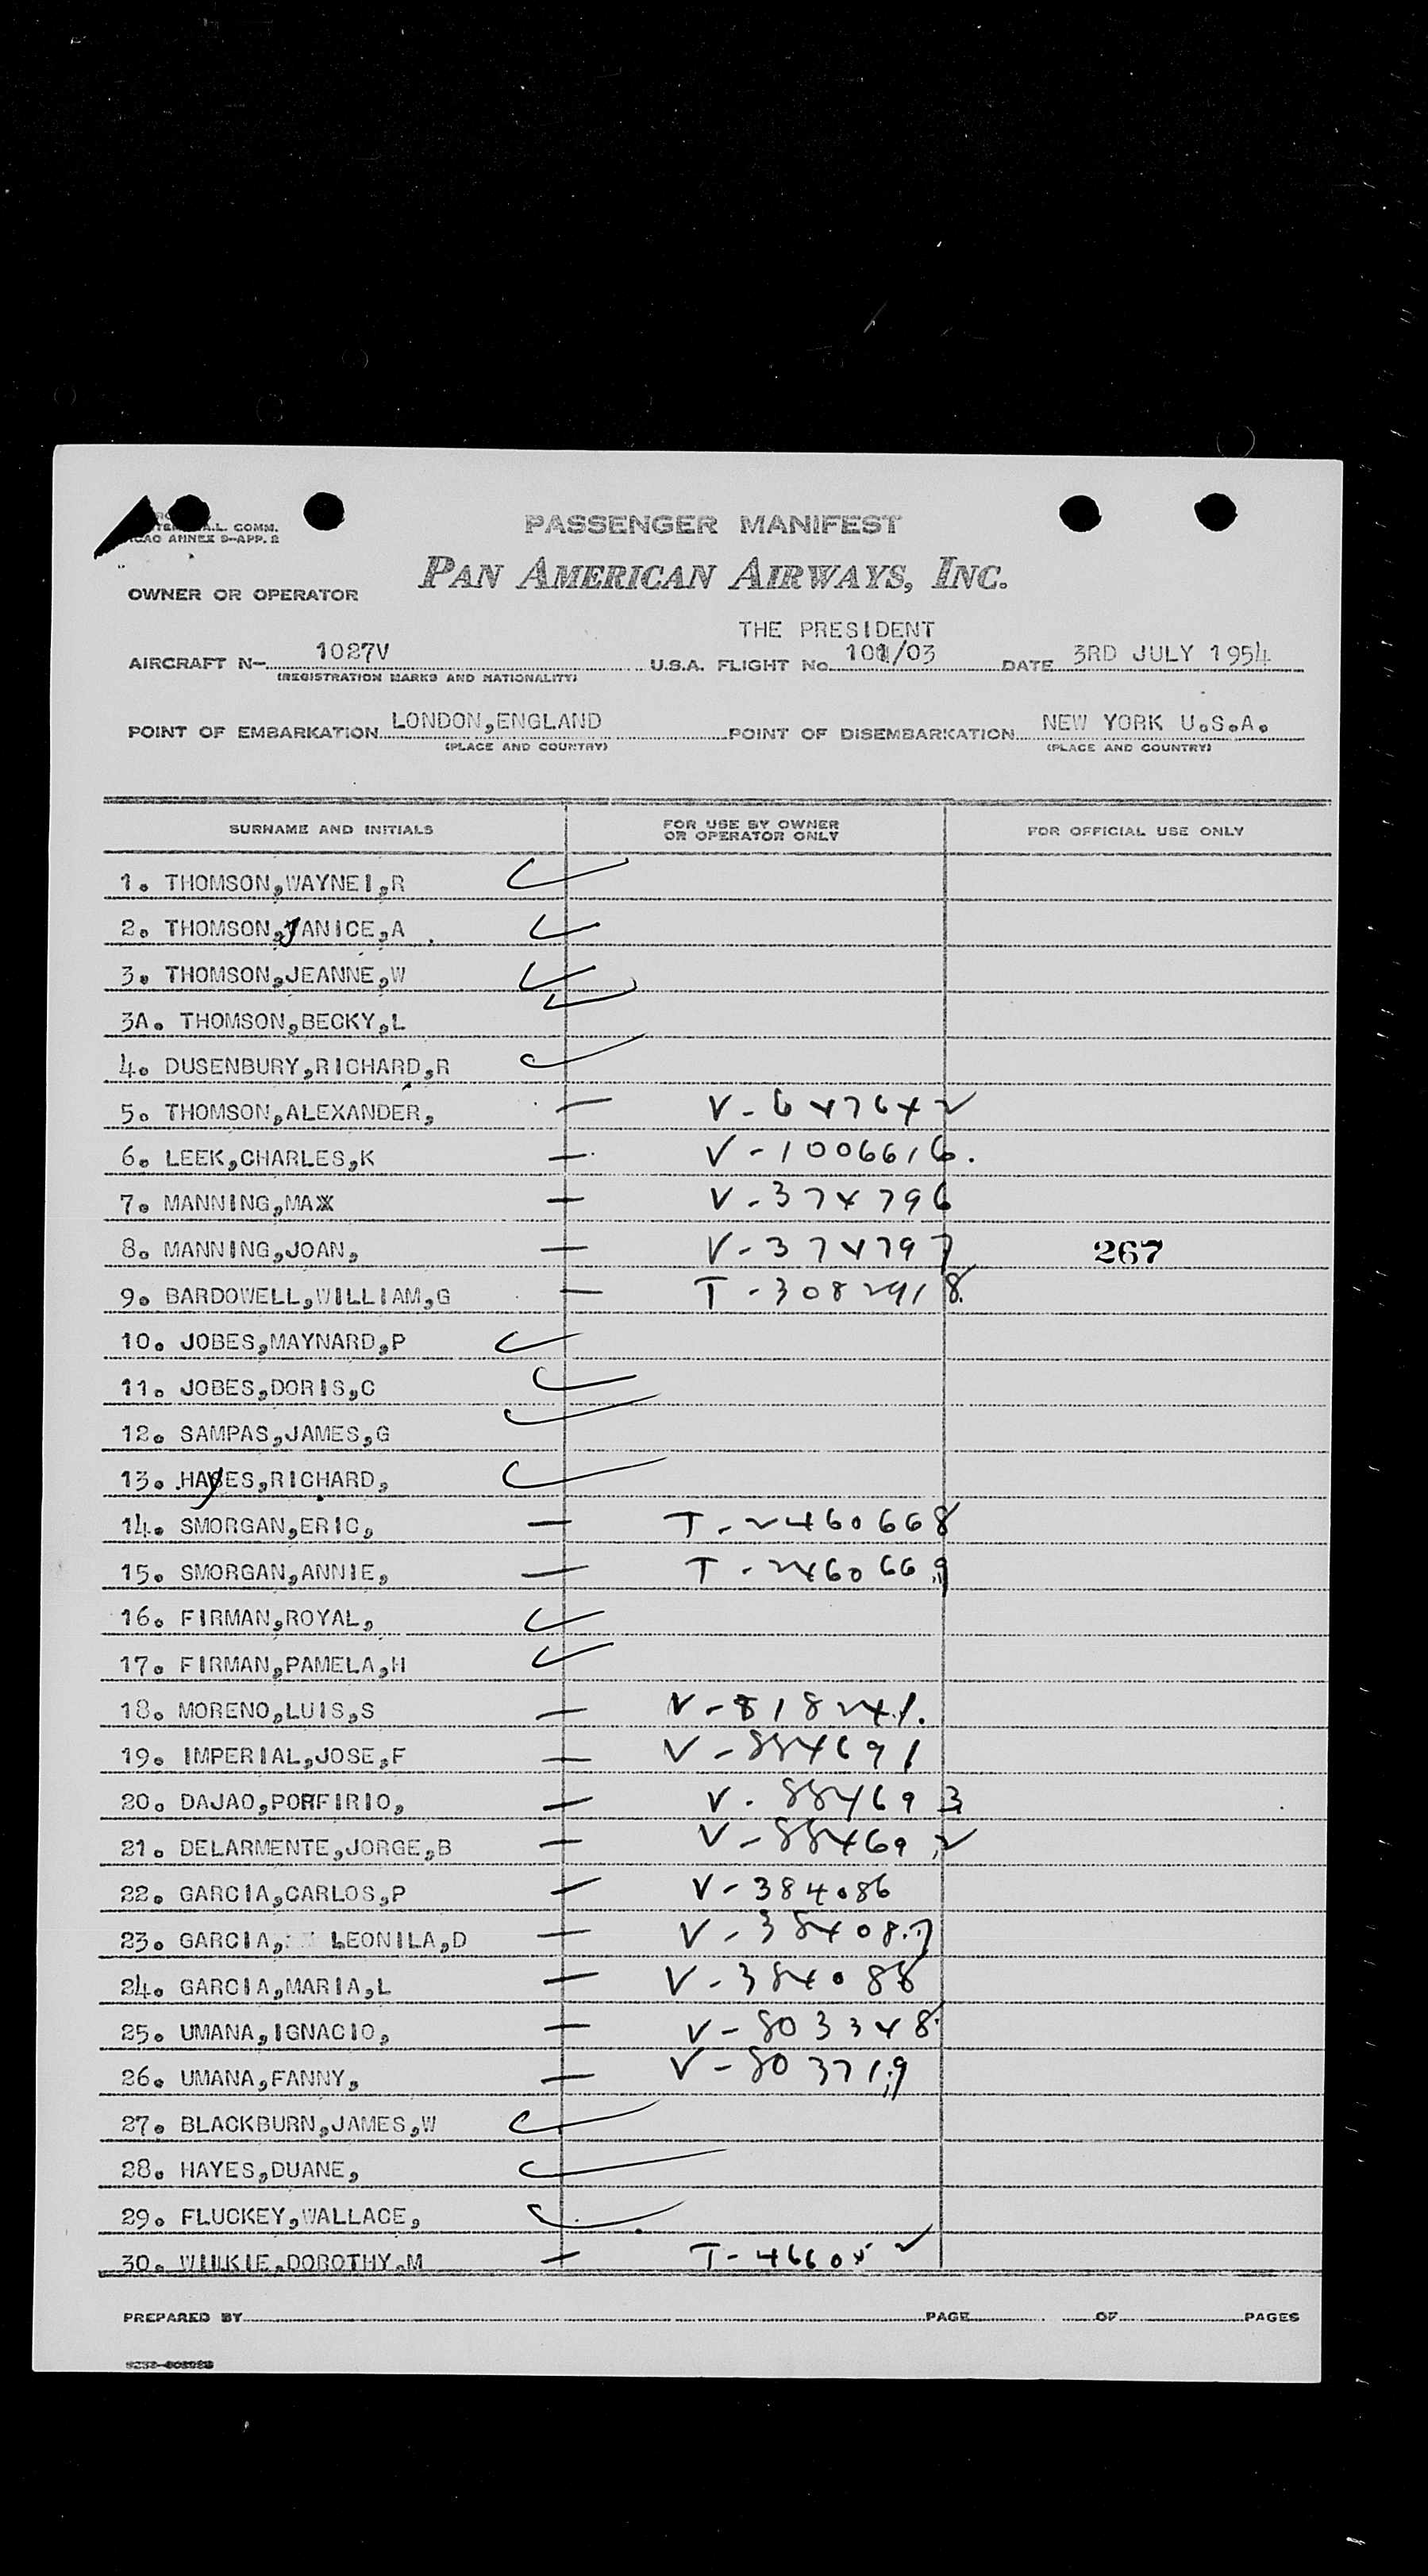 A.L. COMM.
ICAO ANNEX 9-APP. 2
PASSENGER MANIFEST
PAN AMERICAN AIRWAYS, INC.
OWNER OR OPERATOR
THE PRESIDENT
AIRCRAFT N- 1027V U.S.A. FLIGHT No 101/03 DATE 3RD JULY 1954
(REGISTRATION MARKS AND NATIONALITY)
POINT OF EMBARKATION LONDON,ENGLAND POINT OF DISEMBARKATION NEW YORK U.S.A.
(PLACE AND COUNTRY) (PLACE AND COUNTRY)
SURNAME AND INITIALS FOR USE BY OWNER OR OPERATOR ONLY FOR OFFICIAL USE ONLY
1. THOMSON,WAYNEI,R
2. THOMSON,JANICE,A
3. THOMSON,JEANNE,W
3A. THOMSON,BECKY,L
4. DUSENBURY,RICHARD,R
5. THOMSON,ALEXANDER, — V-647642
6. LEEK,CHARLES,K — V-1006616.
7. MANNING,MAX — V-374796
8. MANNING,JOAN, — V-374797 267
9. BARDOWELL,WILLIAM,G — T-3082918
10. JOBES,MAYNARD,P
11. JOBES,DORIS,C
12. SAMPAS,JAMES,G
13. HAYES,RICHARD,
14. SMORGAN,ERIC, — T-2460668
15. SMORGAN,ANNIE, — T-2460669
16. FIRMAN,ROYAL,
17. FIRMAN,PAMELA,H
18. MORENO,LUIS,S — V-818241.
19. IMPERIAL,JOSE,F — V-884691
20. DAJAO,PORFIRIO, — V-884693
21. DELARMENTE,JORGE,B — V-884692
22. GARCIA,CARLOS,P — V-384086
23. GARCIA, LEONILA,D — V-384087
24. GARCIA,MARIA,L — V-384088
25. UMANA,IGNACIO, — V-803348
26. UMANA,FANNY, — V-803719
27. BLACKBURN,JAMES,W
28. HAYES,DUANE,
29. FLUCKEY,WALLACE,
30. WILKIE,DOROTHY,M — T-46605
PREPARED BY PAGE OF PAGES